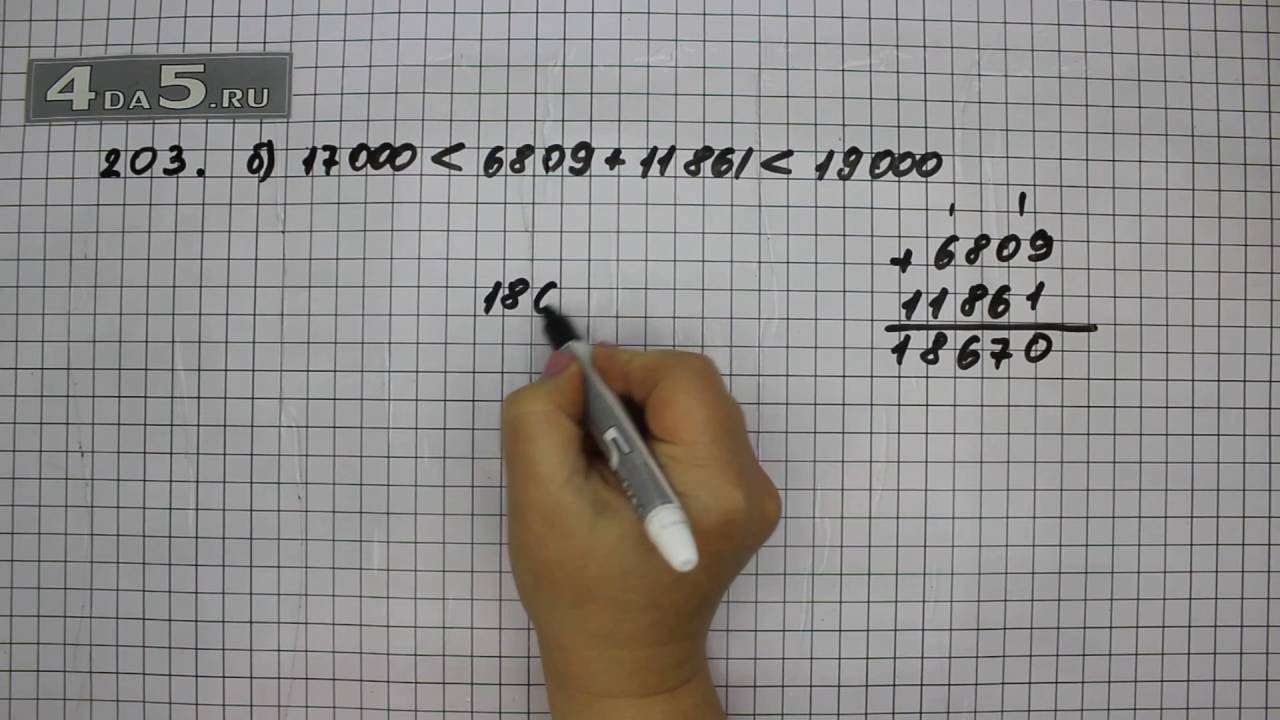 4DA5.RU
203. б) 17000 < 6809 + 11861 < 19000
+ 6809
11861
18670
18